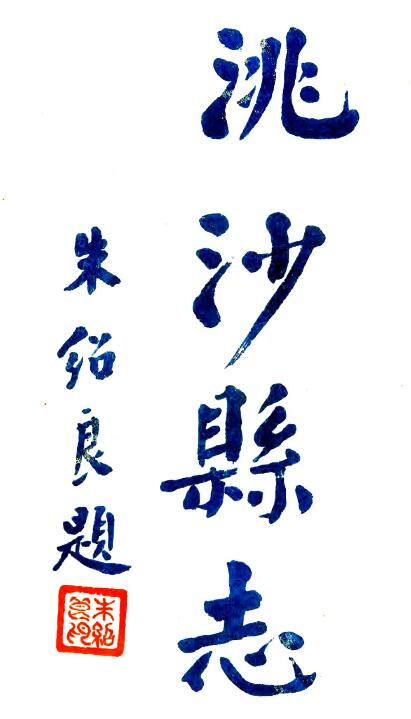 洮沙縣志
朱紹良題
朱紹良印